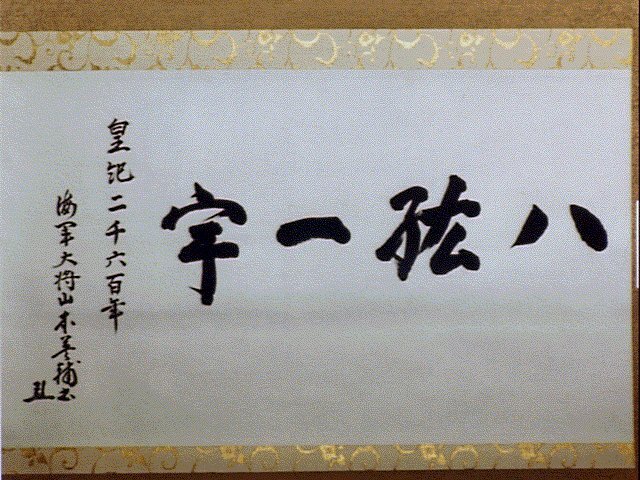 八紘一宇
皇紀二千六百年
海軍大将山本英輔書